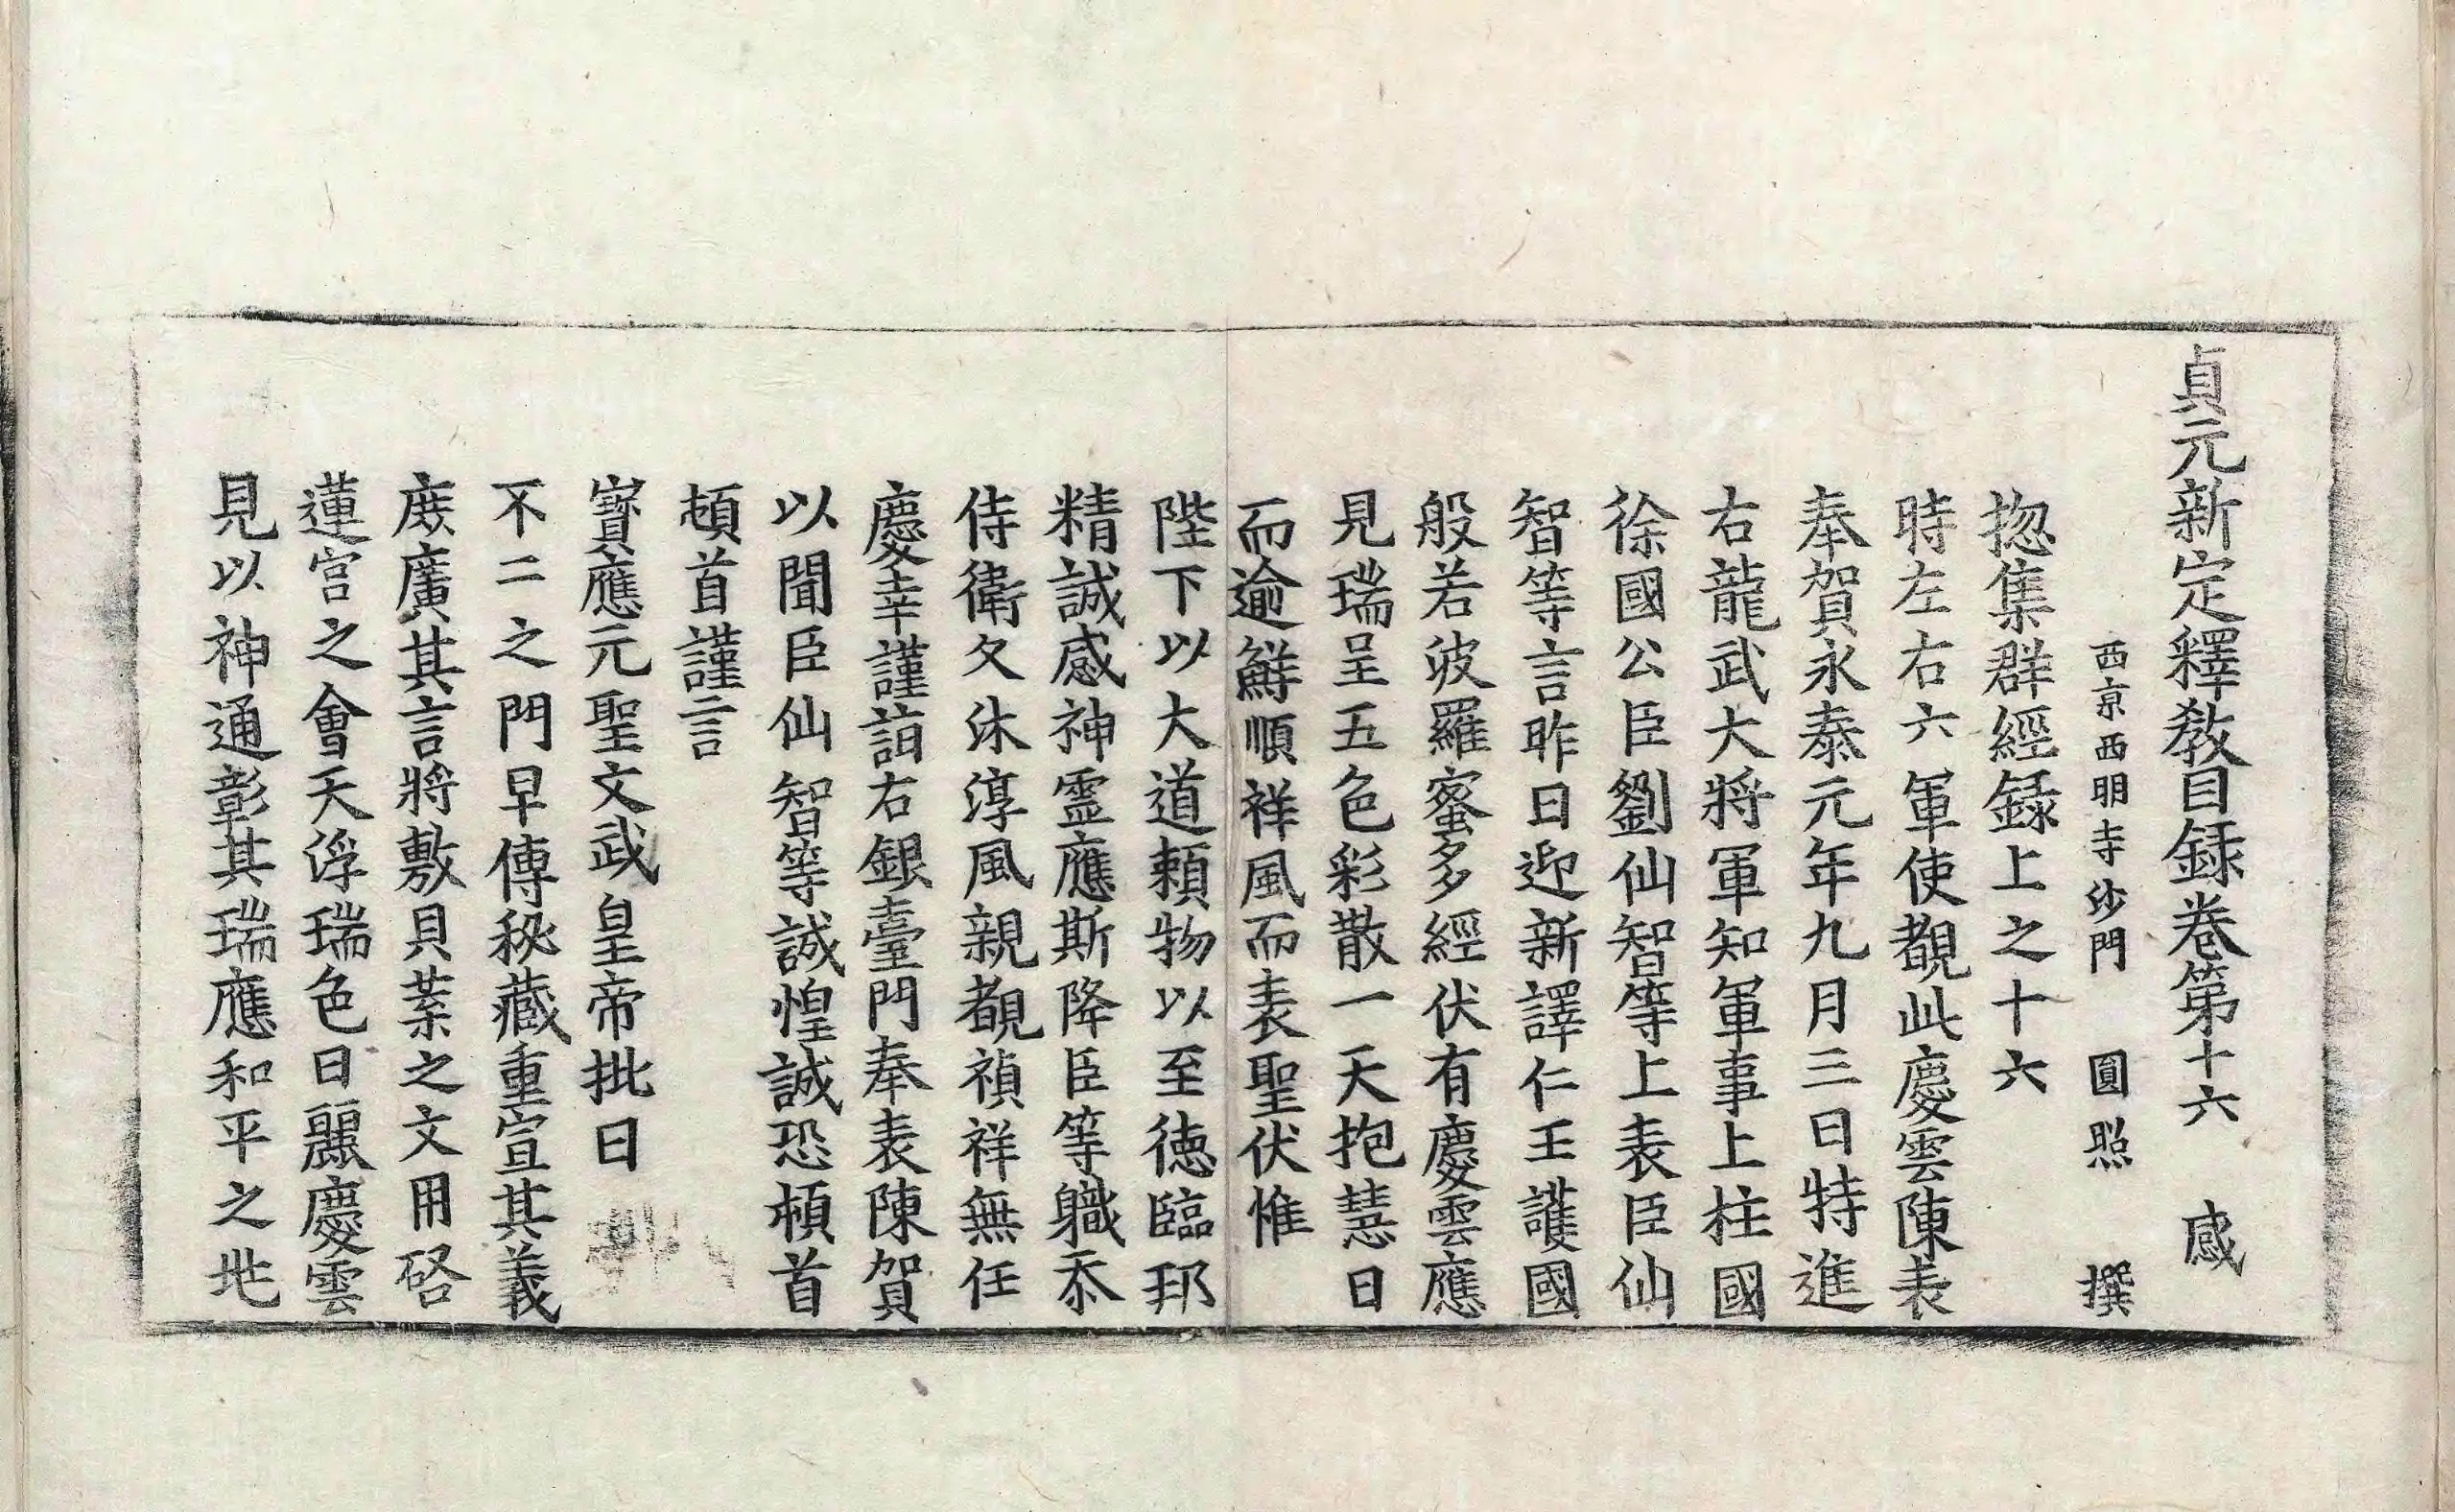 貞元新定釋教目録卷第十六 感
西京西明寺沙門 圓照 撰
揔集群經録上之十六
時左右六軍使覩此慶雲陳表
奉賀永泰元年九月三日特進
右龍武大將軍知軍事上柱國
徐國公臣劉仙智等上表臣仙
智等言昨日迎新譯仁王護國
般若波羅蜜多經伏有慶雲應
見瑞呈五色彩散一天抱慧日
而逾鮮順祥風而表聖伏惟
陛下以大道頼物以至德臨邦
精誠感神霊應斯降臣等職忝
侍衛久沐淳風親覩禎祥無任
慶幸謹詣右銀臺門奉表陳賀
以聞臣仙智等誠惶誠恐頓首
頓首謹言
寶應元聖文武皇帝批曰
不二之門早傳秘藏重宣其義
庶廣其言將敷貝葉之文用啓
蓮宮之會天浮瑞色日麗慶雲
見以神通彰其瑞應和平之兆